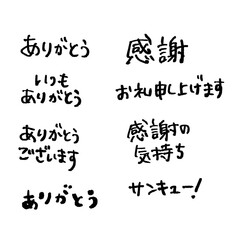 ありがとう
いつも
ありがとう
ありがとう
ございます
ありがとう
感謝
お礼申し上げます
感謝の
気持ち
サンキュー!